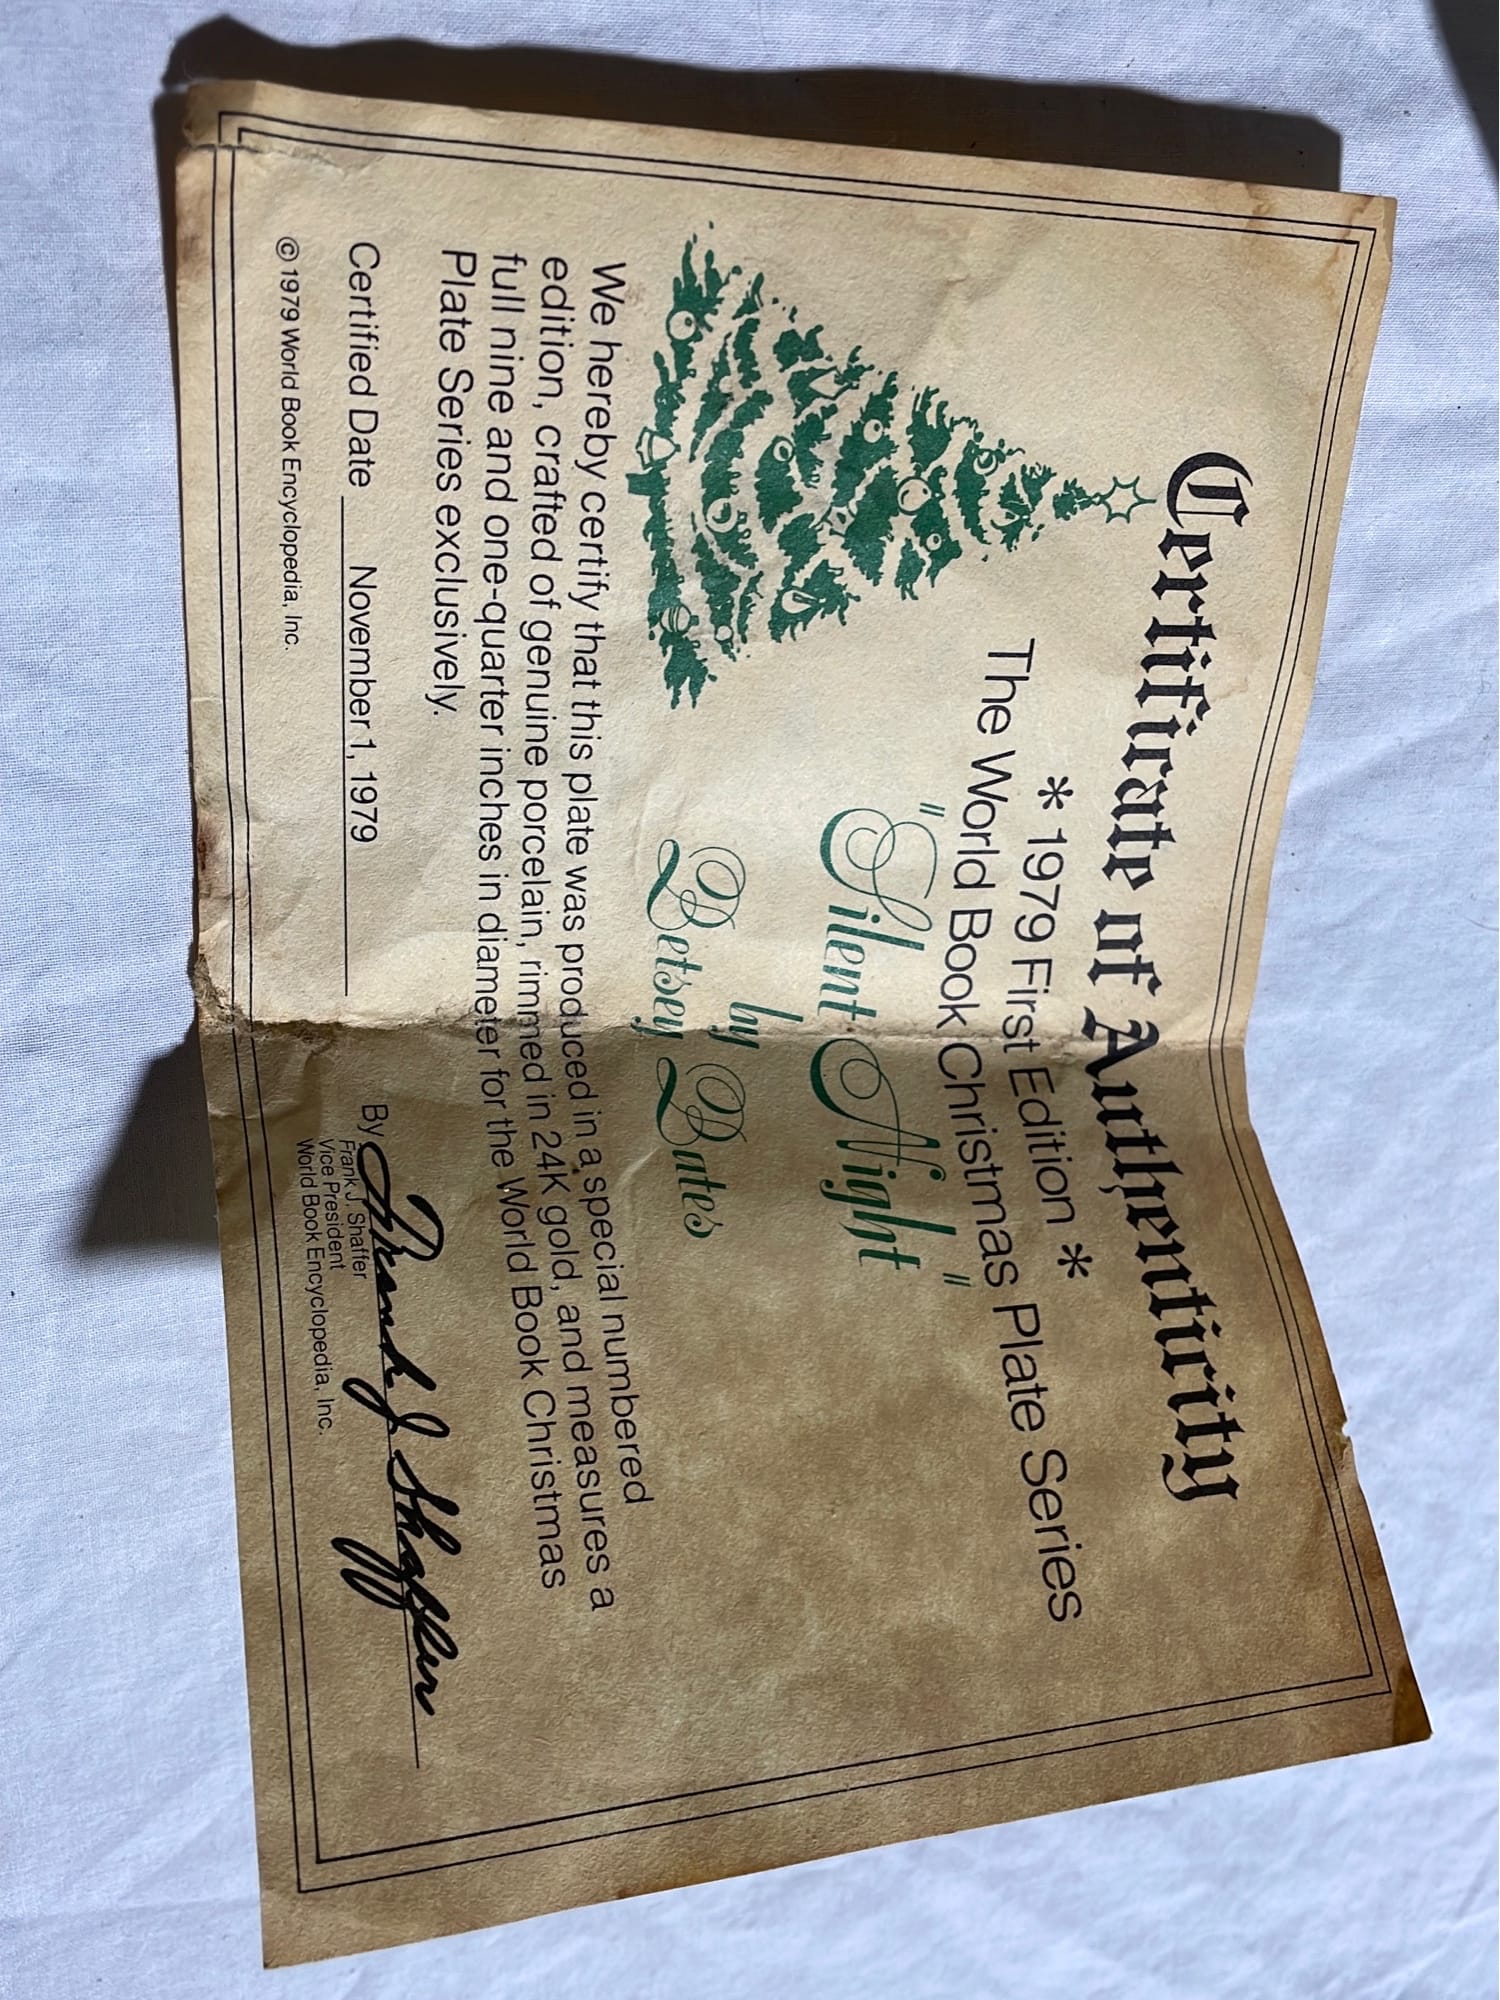 Certificate of Authenticity
* 1979 First Edition *
The World Book Christmas Plate Series
"Silent Night"
by
Betsey Bates
We hereby certify that this plate was produced in a special numbered
edition, crafted of genuine porcelain, rimmed in 24K gold, and measures a
full nine and one-quarter inches in diameter for the World Book Christmas
Plate Series exclusively.
Certified Date November 1, 1979
By Frank J. Shaffer
Frank J. Shaffer
Vice President
World Book Encyclopedia, Inc.
© 1979 World Book Encyclopedia, Inc.